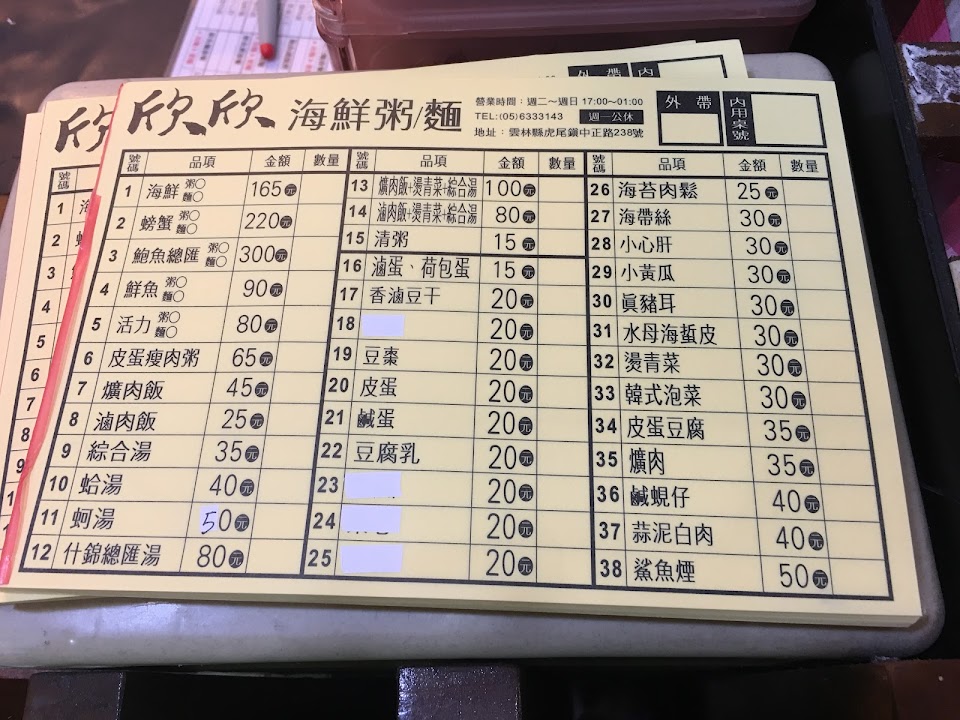 欣欣 海鮮粥/麵
營業時間：週二～週日 17:00～01:00
TEL:(05)6333143 週一公休
地址：雲林縣虎尾鎮中正路238號
外帶
內用桌號
號碼 品項 金額 數量
1 海鮮 粥○ 麵○ 165元
2 螃蟹 粥○ 麵○ 220元
3 鮑魚總匯 粥○ 麵○ 300元
4 鮮魚 粥○ 麵○ 90元
5 活力 粥○ 麵○ 80元
6 皮蛋瘦肉粥 65元
7 爌肉飯 45元
8 滷肉飯 25元
9 綜合湯 35元
10 蛤湯 40元
11 蚵湯 50元
12 什錦總匯湯 80元
號碼 品項 金額 數量
13 爌肉飯+燙青菜+綜合湯 100元
14 滷肉飯+燙青菜+綜合湯 80元
15 清粥 15元
16 滷蛋、荷包蛋 15元
17 香滷豆干 20元
18 20元
19 豆棗 20元
20 皮蛋 20元
21 鹹蛋 20元
22 豆腐乳 20元
23 20元
24 20元
25 20元
號碼 品項 金額 數量
26 海苔肉鬆 25元
27 海帶絲 30元
28 小心肝 30元
29 小黃瓜 30元
30 眞豬耳 30元
31 水母海蜇皮 30元
32 燙青菜 30元
33 韓式泡菜 30元
34 皮蛋豆腐 35元
35 爌肉 35元
36 鹹蜆仔 40元
37 蒜泥白肉 40元
38 鯊魚煙 50元